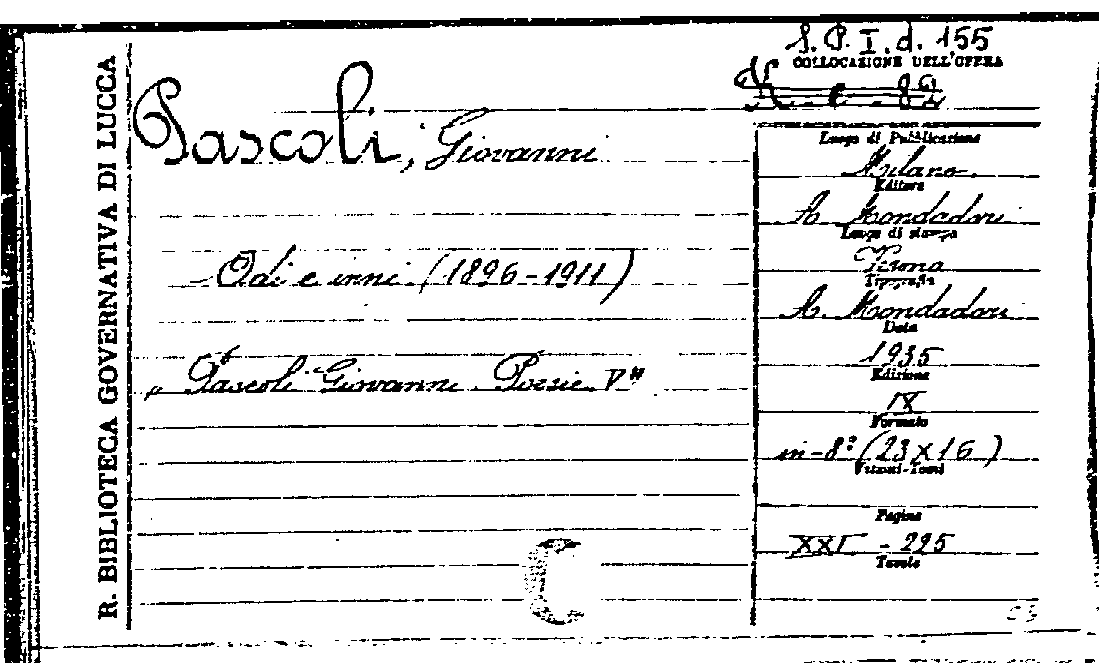 R. BIBLIOTECA GOVERNATIVA DI LUCCA
S. P. I. d. 155
COLLOCAZIONE DELL'OPERA
Pascoli, Giovanni
Luogo di Pubblicazione
Milano.
Editore
A. Mondadori
Luogo di stampa
Verona
Tipografia
Odi e inni. (1896-1911)
A. Mondadori
Data
1935
Edizione
„ Pascoli Giovanni. Poesie. V"
IX
Formato
in-8° (23 X 16)
Volumi-Tomi
Pagine
XXI - 225
Tavole
C